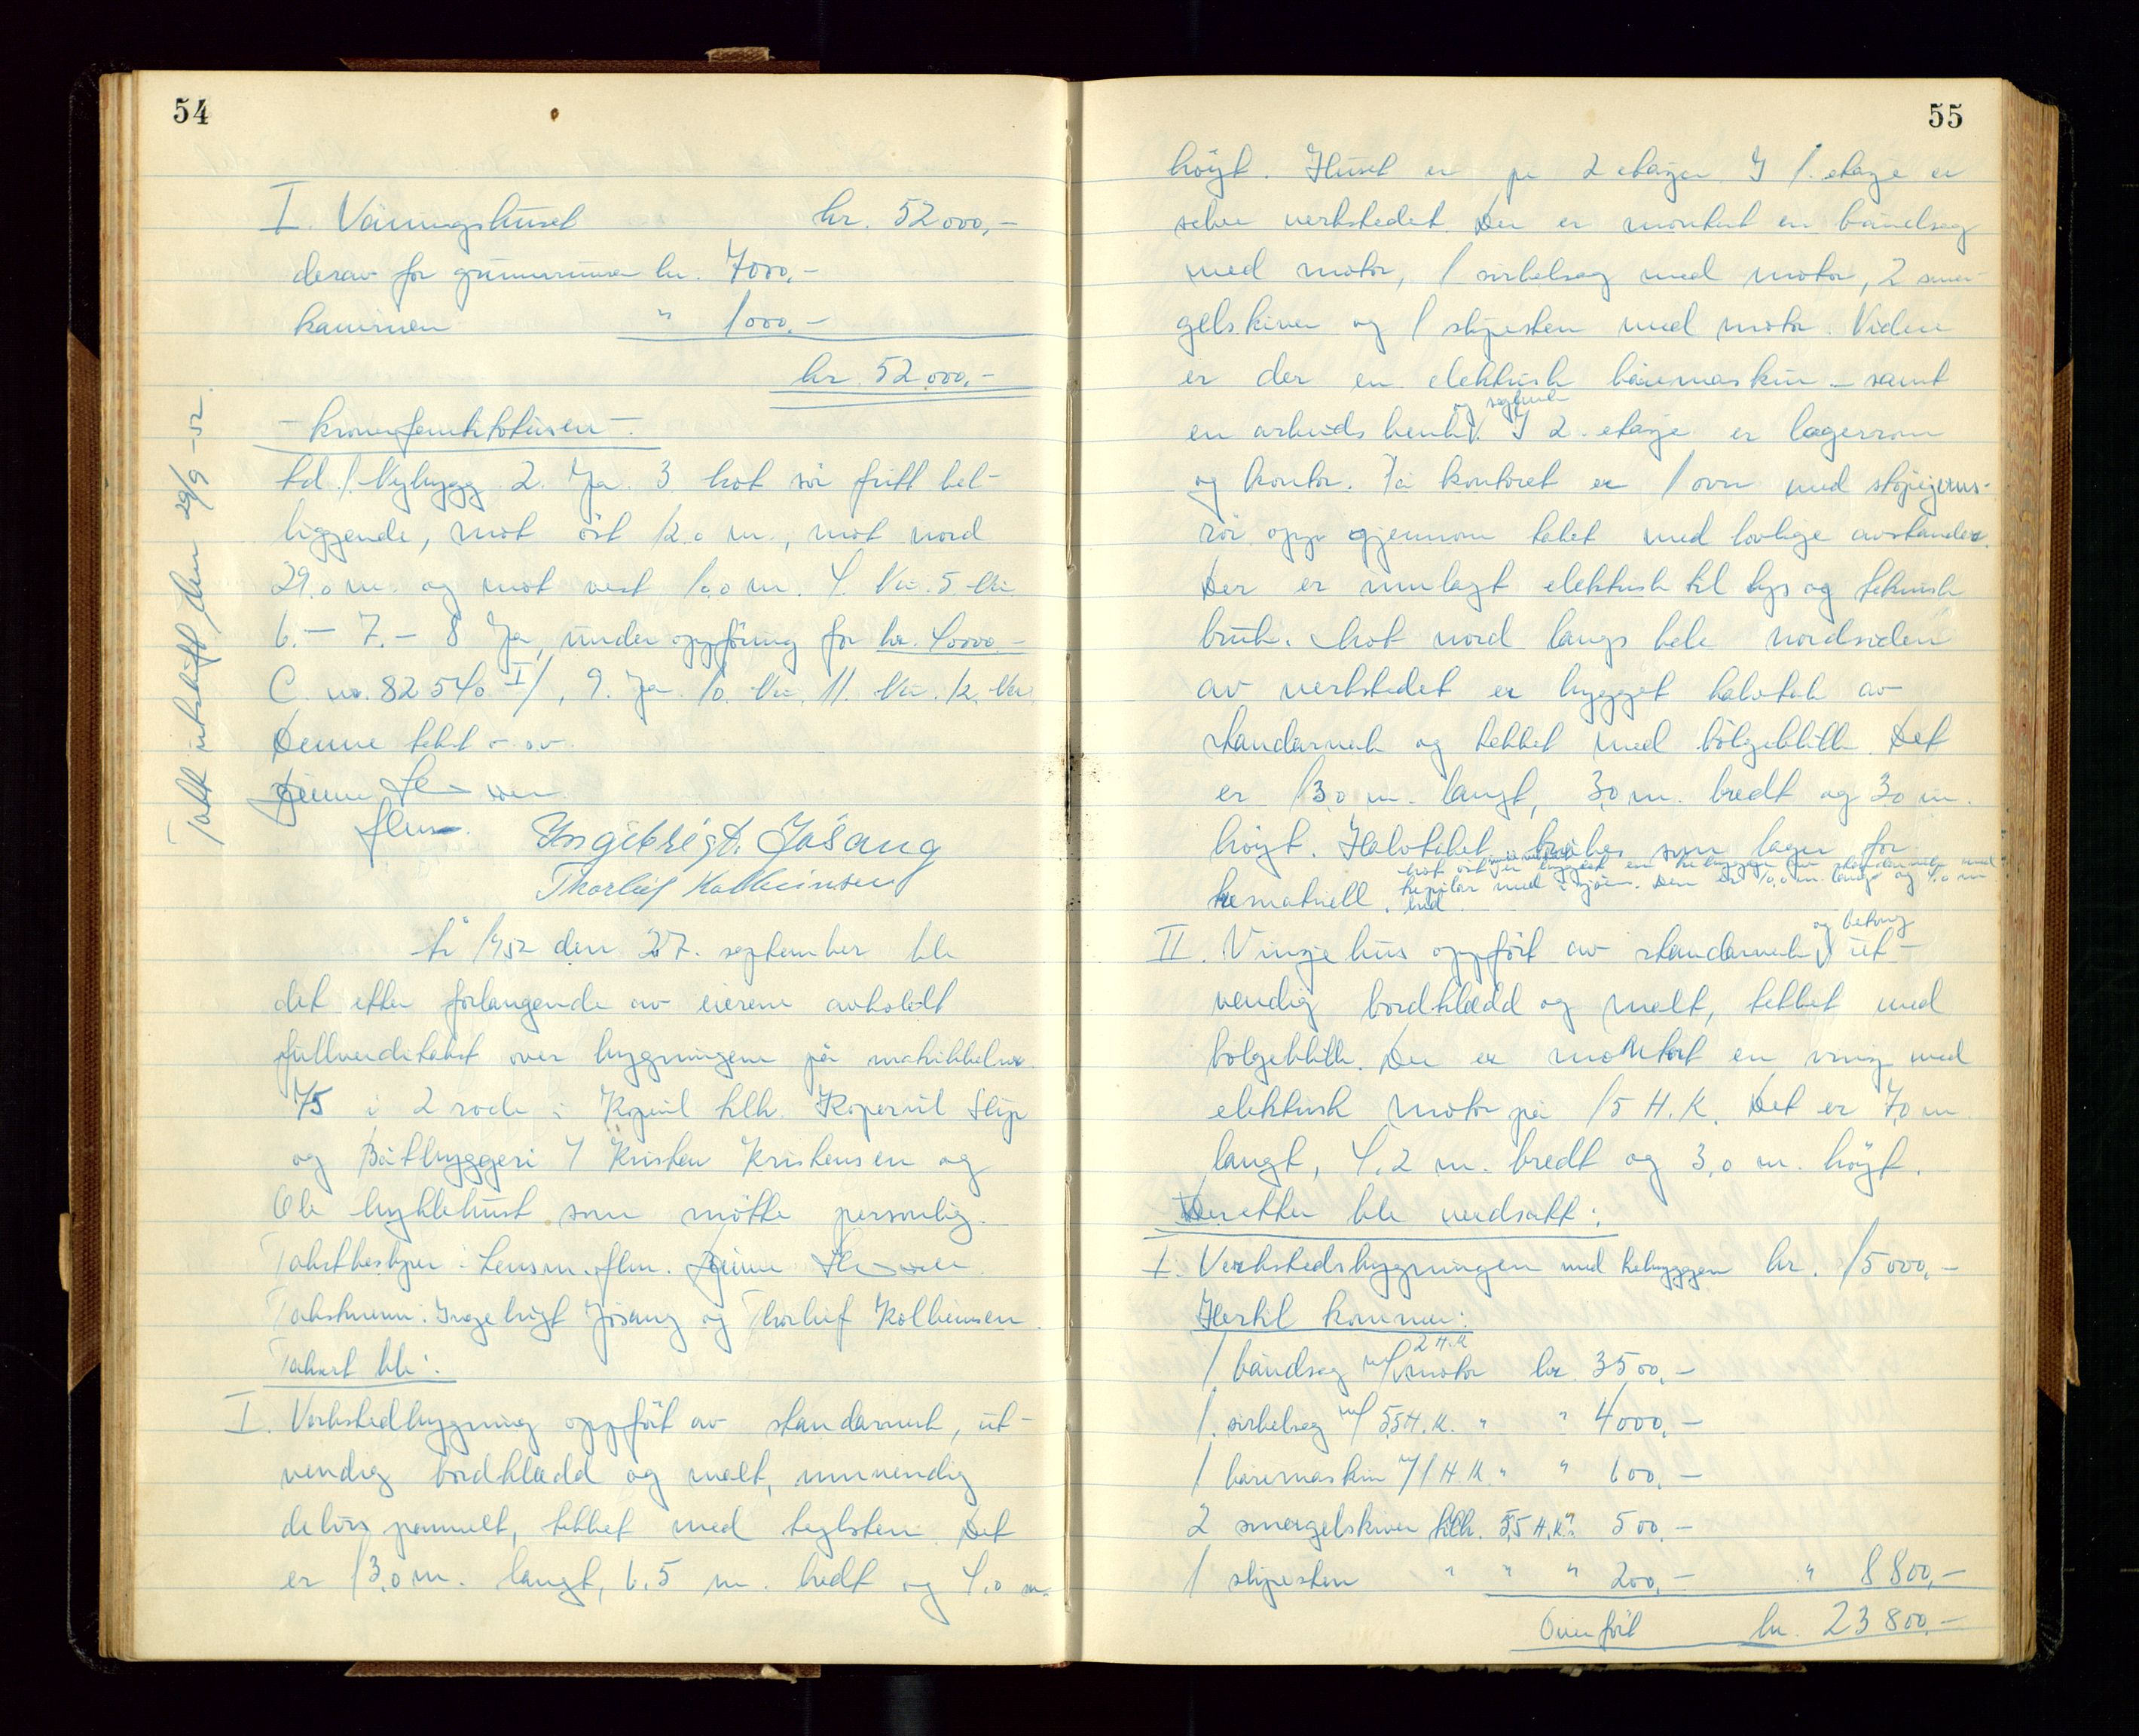 54
I. Våningshuset kr. 52000,-
derav for grunnmuren kr. 7000,-
kaminen " 1000,-
kr. 52.000,-
- kronerfemtitotusen -
td. 1. Nybygg 2. Ja. 3 Mot sör fritt bel-
liggende, mot öst 12.0 m., mot nord
29.0 m. og mot vest 10.0 m. 4. Nei. 5 Nei
6. - 7. - 8 Ja, under oppföring for kr. 40000.-
C. nr. 82540 I/, 9. Ja 10. Nei. 11. Nei. 12. Nei
Denne takst o.s.v.
flm. Ingebrigt Jøsang
Thorleif Kolbeinsen
Takk utskrift den 29/9 -52.
År 1952 den 27. september ble
det etter forlangende av eierene avholdt
fullverditakst over bygningene på matrikkelnr.
75 i 2 rode i Kopervik tilh. Kopervik Slip
og Båtbyggeri v/ Kristen Kristensen og
Ole som møtte personlig.
Takstbestyrer: Lensm. flm.
Takstmenn: Ingebrigt Jösang og Thorleif Kolbeinsen.
Taksert ble:
I. Verkstedbygning oppfört av standarverk, ut-
vendig bordkledd og malt, innvendig
delvis pannelt, tekket med teglsten. Det
er 13,0 m. langt, 6.5 m. bredt og 4.0 m.
55
höyt. Huset er på 2 etasjer I 1. etasje er
selve verkstedet. Der er montert en båndsag
med motor, 1 sirkelsag med motor, 2 smer-
gelskiver og 1 slipesten med motor. Videre
er der en elektrisk boremaskin - samt
en arbeids benk. I 2. etasje er lagerrom
og kontor. På kontoret er 1 ovn med stöpejerns-
rör opp gjennom taket med lovlige avstander.
Der er innlagt elektrisk til lys og teknisk
bruk. Mot nord langs hele nordsiden
av verkstedet er bygget halvtak av
standarverk og tekket med bölgeblikk. Det
er 13,0 m. langt, 3,0 m. bredt og 3,0 m.
höyt. Halvtaket brukes som lager for
Mot öst er bygget en tilbygger av standarverk med
trepilar ned i sjöen. Den er 10,0 m. lang og 4.0 m
trematriell. bred.
og betong
II. Vinsjehus oppfört av standarverk ut-
vendig bordkledd og malt, tekket med
bolgeblikk. Der er montert en vinsj med
elektrisk motor på 15 H.K. Det er 7,0 m
langt, 4.2 m. bredt og 3,0 m. höyt.
Deretter ble verdsatt:
I. Verkstedsbygningen med tilbyggen kr. 15000,-
Hertil kommer:
2 H.K
1 båndsag m/ motor kr. 3500,-
1. sirkelsag m/ 5,5 H.K. " " 4000,-
1 boremaskin m/ 1 H.K. " " 600,-
2 smergelskiver tilh. 5,5 H.K. " 500.-
1 slipesten " " " 200,- " 8800,-
Overfört kr. 23800,-